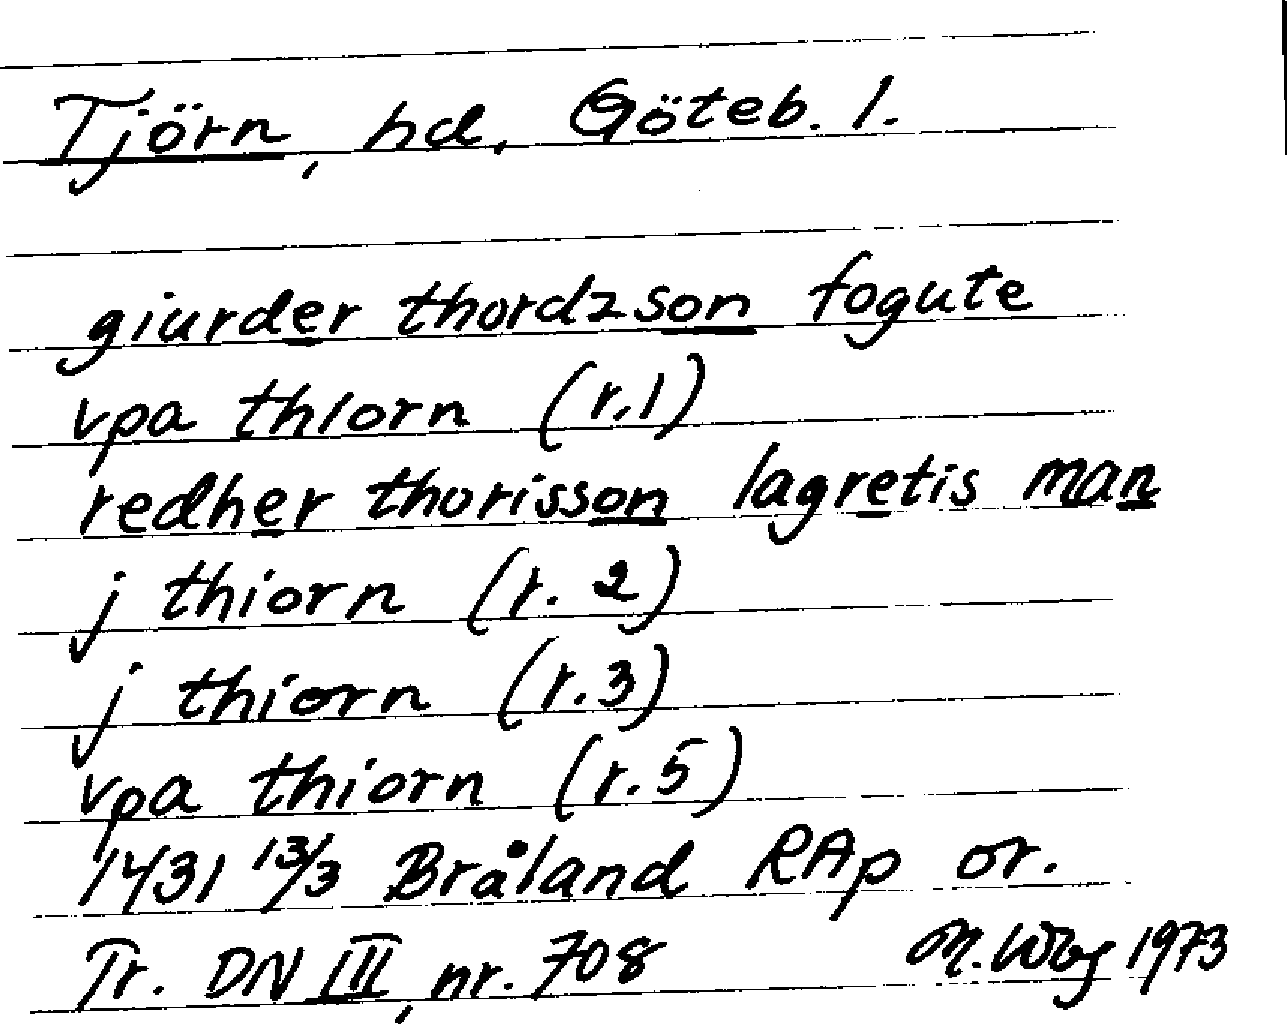 Tjörn, hd, Göteb. l.
giurder thordzson fogute
vpa thiorn (r.1)
redher thorisson lagretis man
j thiorn (r. 2)
j thiorn (r.3)
vpa thiorn (r.5)
1431 13/3 Bråland RAp or.
Tr. DN III, nr. 708 M. Wbg 1973